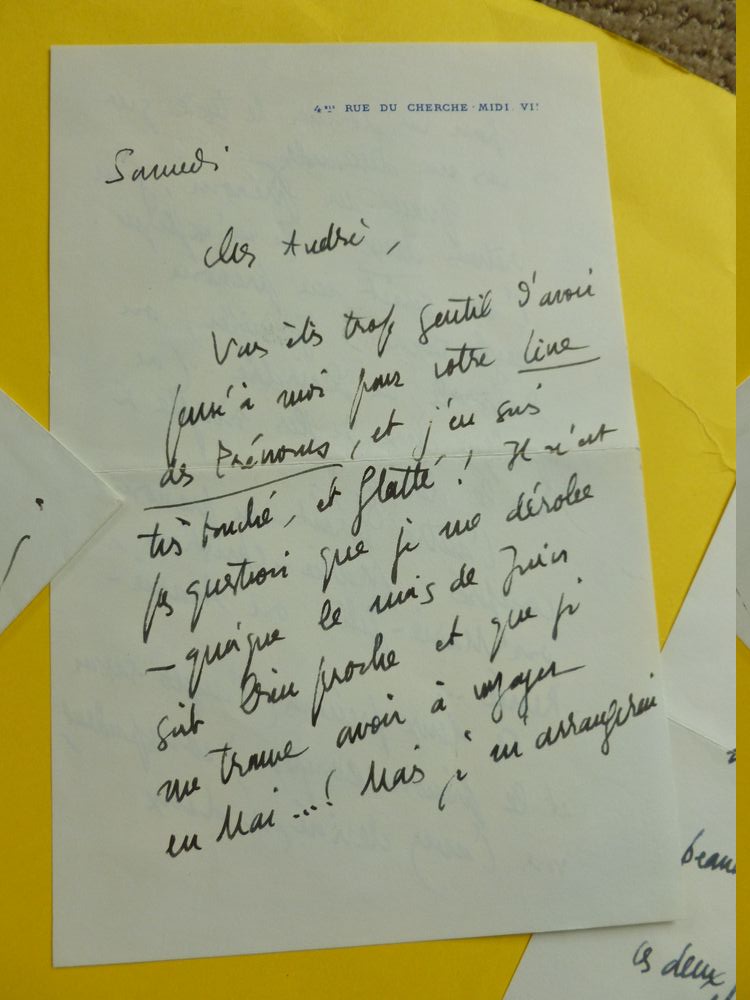 4BIS RUE DU CHERCHE-MIDI. VIE
Samedi
Cher André,
Vous êtes trop gentil d'avoir
pensé à moi pour votre Livre
des Prénoms, et j'en suis
très touché, et flatté! Il n'est
pas question que je me dérobe
– quoique le mois de Juin
soit bien proche et que je
me trouve avoir à voyager
en Mai...! Mais je m'arrangerai
beau
ces deux